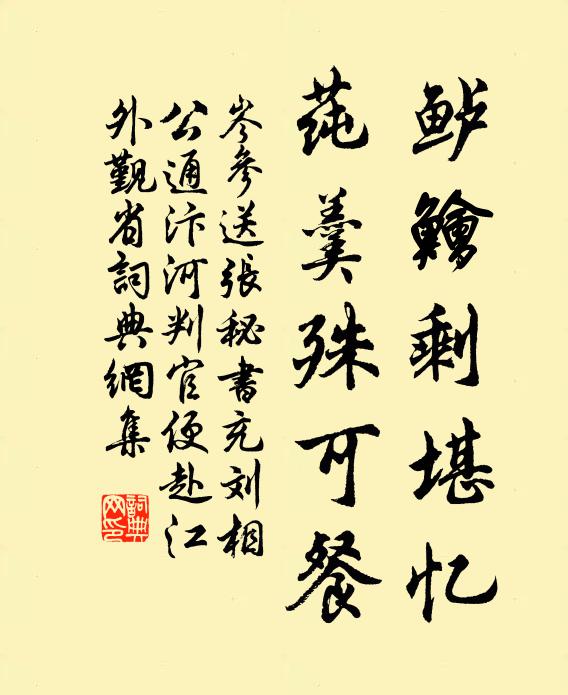 鲈鱠剩堪忆
莼羹殊可餐
岑参送張秘書充刘相
公通汴河判官便赴江
外觐省詞典網集
詞典网印